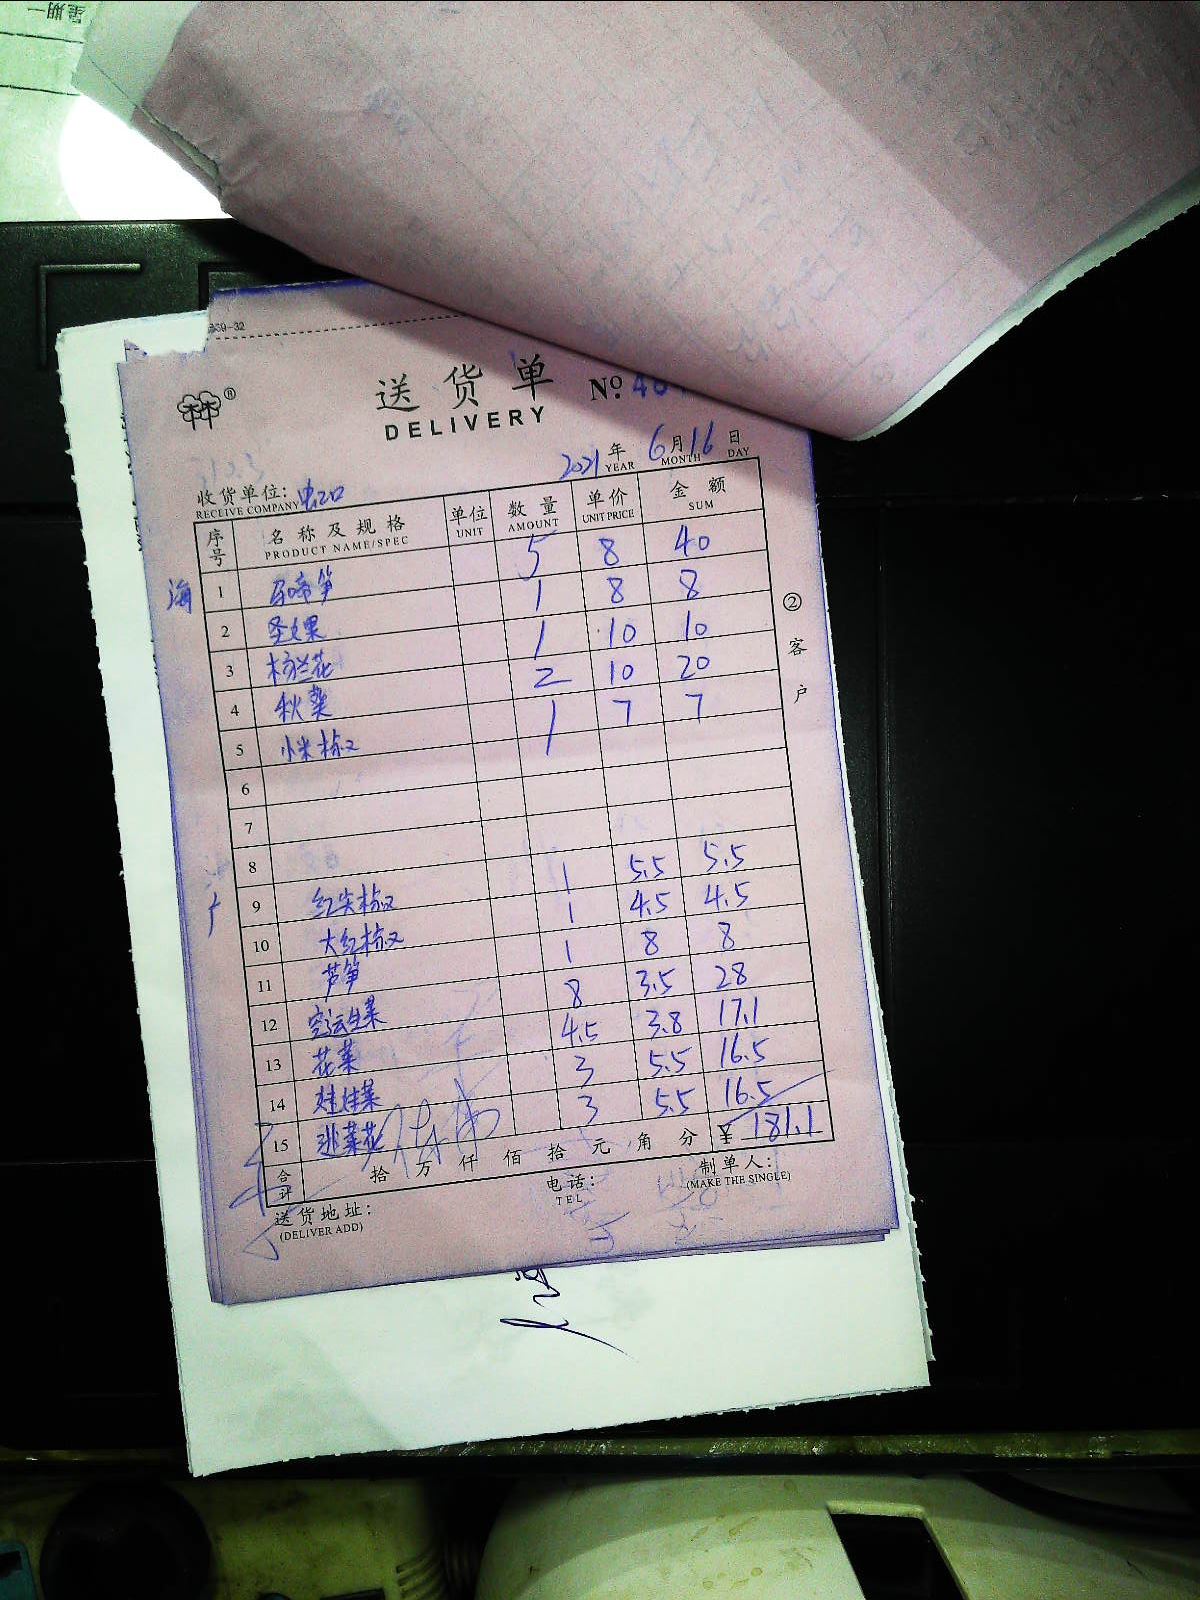 星期一
39-32
送货单
DELIVERY
№ 46
2021 年 YEAR 6 月 MONTH 16 日 DAY
收货单位:
RECLIVE COMPANY
序号 名称及规格 PRODUCT NAME/SPEC 单位 UNIT 数量 AMOUNT 单价 UNIT PRICE 金额 SUM
海 1 马啼笋 5 8 40
2 圣女果 1 8 8
3 杨兰花 1 10 10
4 秋葵 2 10 20
5 小米椒 1 7 7
6
7
8
9 红尖椒 1 5.5 5.5
10 大红椒 1 4.5 4.5
11 芦笋 1 8 8
12 空运生菜 8 3.5 28
13 花菜 4.5 3.8 17.1
14 娃娃菜 3 5.5 16.5
15 菜花 3 5.5 16.5
合计 拾 万 仟 佰 拾 元 角 分 ¥ 181.1
送货地址: 电话: 制单人:
(DELIVER ADD) TEL (MAKE THE SINGLE)
②客户